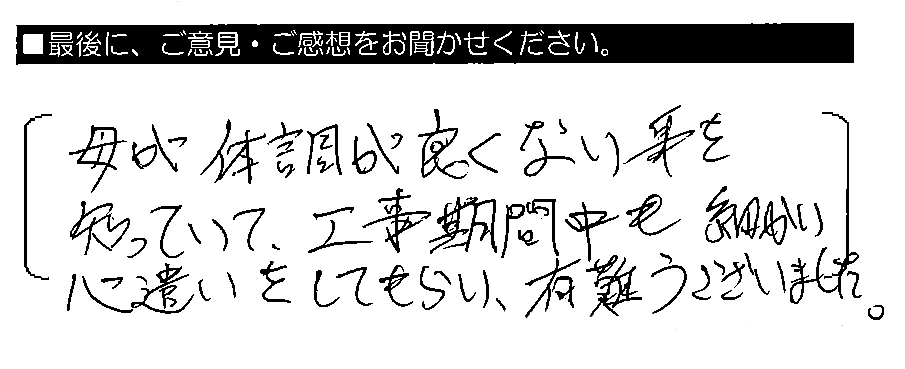 ■最後に、ご意見・ご感想をお聞かせください。
母が体調が良くない事を
知っていて、工事期間中も細かい
心遣いをしてもらい、有難うございました。